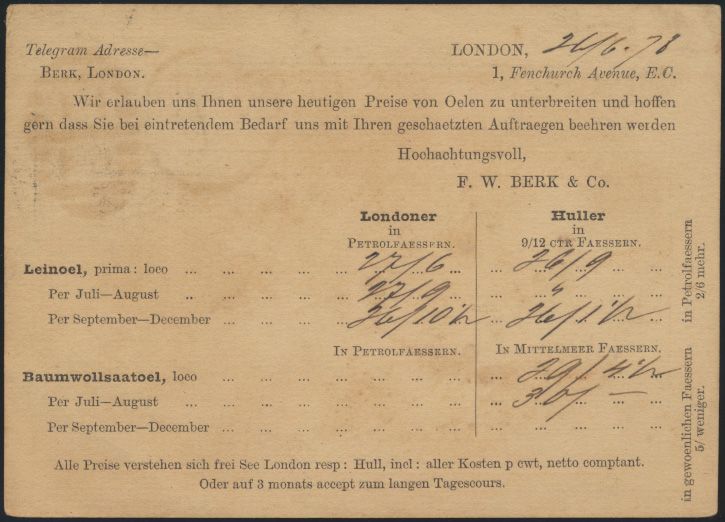 Telegram Adresse— LONDON, 26/6. 78
BERK, LONDON. 1, Fenchurch Avenue, E.C.
Wir erlauben uns Ihnen unsere heutigen Preise von Oelen zu unterbreiten und hoffen
gern dass Sie bei eintretendem Bedarf uns mit Ihren geschaetzten Auftraegen beehren werden
Hochachtungsvoll,
F. W. BERK & Co.
Londoner Huller
in in
PETROLFAESSERN. 9/12 CTR FAESSERN.
Leinoel, prima: loco ... ... ... ... 27/6 ... ... 26/9 ... ...
Per Juli—August .. ... ... ... 27/9 ... ... " ... ...
Per September—December ... ... ... 26/10½ ... 26/1½ ...
IN PETROLFAESSERN. IN MITTELMEER FAESSERN.
Baumwollsaatoel, loco ... ... ... ... ... ... ... 29/4½ ...
Per Juli—August ... ... ... ... ... ... ... 30/— ...
Per September—December ... ... ... ... ... ... ... ... ... ...
in Petrolfaessern
2/6 mehr.
in gewoenlichen Faessern
5/ weniger.
Alle Preise verstehen sich frei See London resp: Hull, incl: aller Kosten p cwt, netto comptant.
Oder auf 3 monats accept zum langen Tagescours.